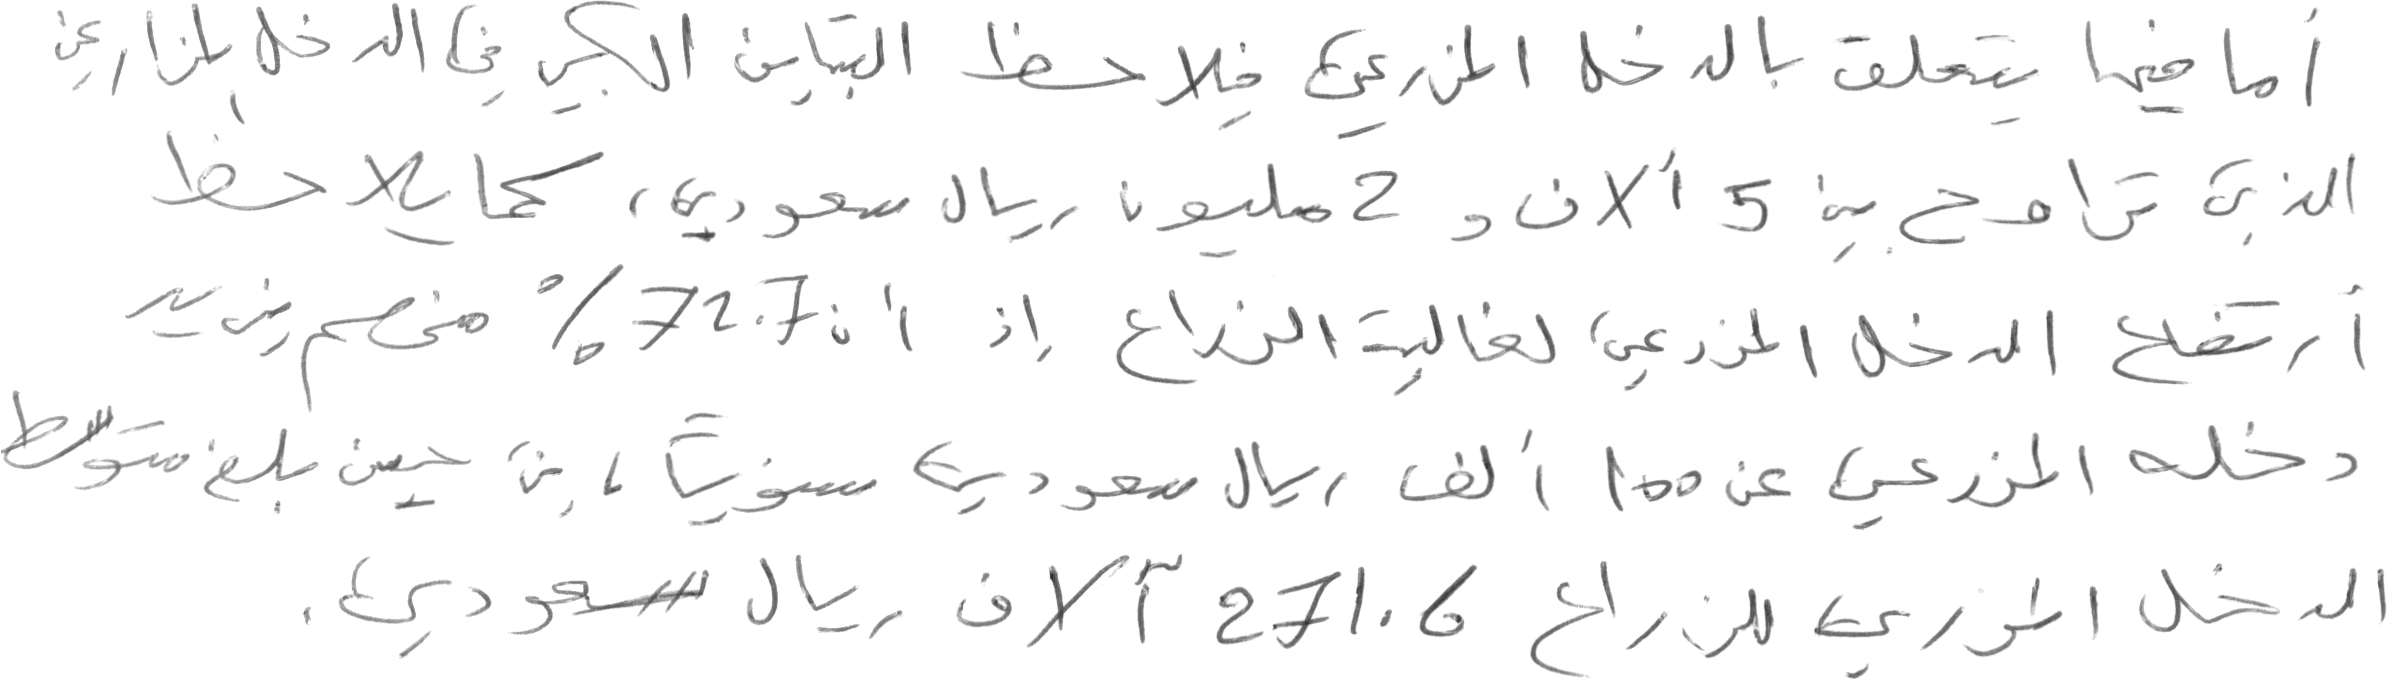 أما فيما يتعلق بالدخل المزرعي فيلاحظ التباين الكبير في الدخل المزارعين
الذي تراوح بين 5 ألاف و 2 مليون ريال سعودي، كما يلاحظ
أرتفاع الدخل المزرعي لغالية الزراع إذ أن 72.7% منهم يزيد
دخله المزرعي عن 100 ألف ريال سعودي سنويتاً، في حين بلغ متوسط
الدخل المزرعي للزراع 271.6 آلاف ريال سعودي.